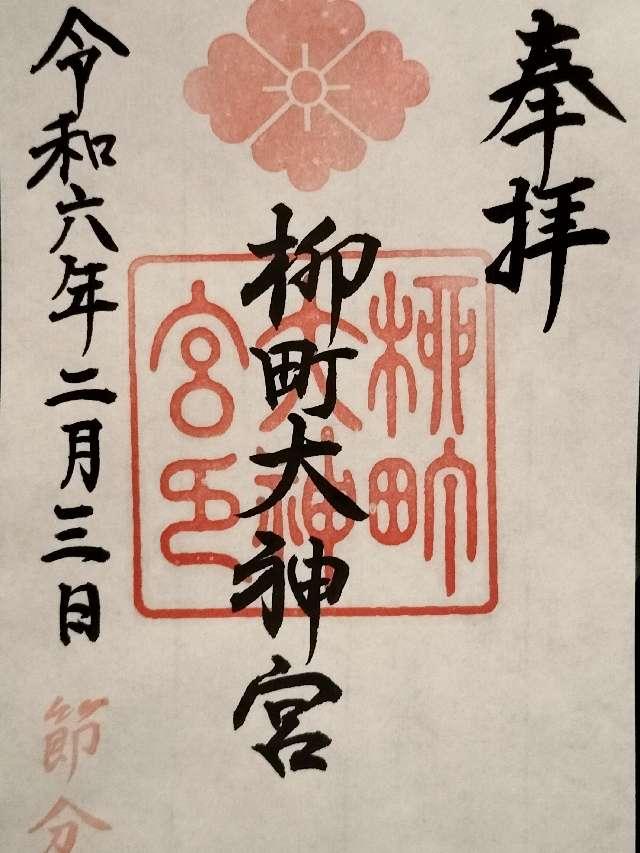 奉拝
柳町大神宮
柳町
大神
宮印
令和六年二月三日
節分